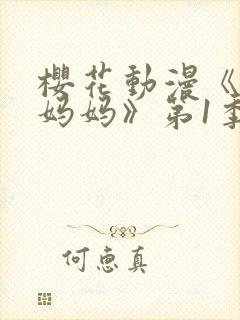 櫻花動漫《
妈妈》第1季
何惠真